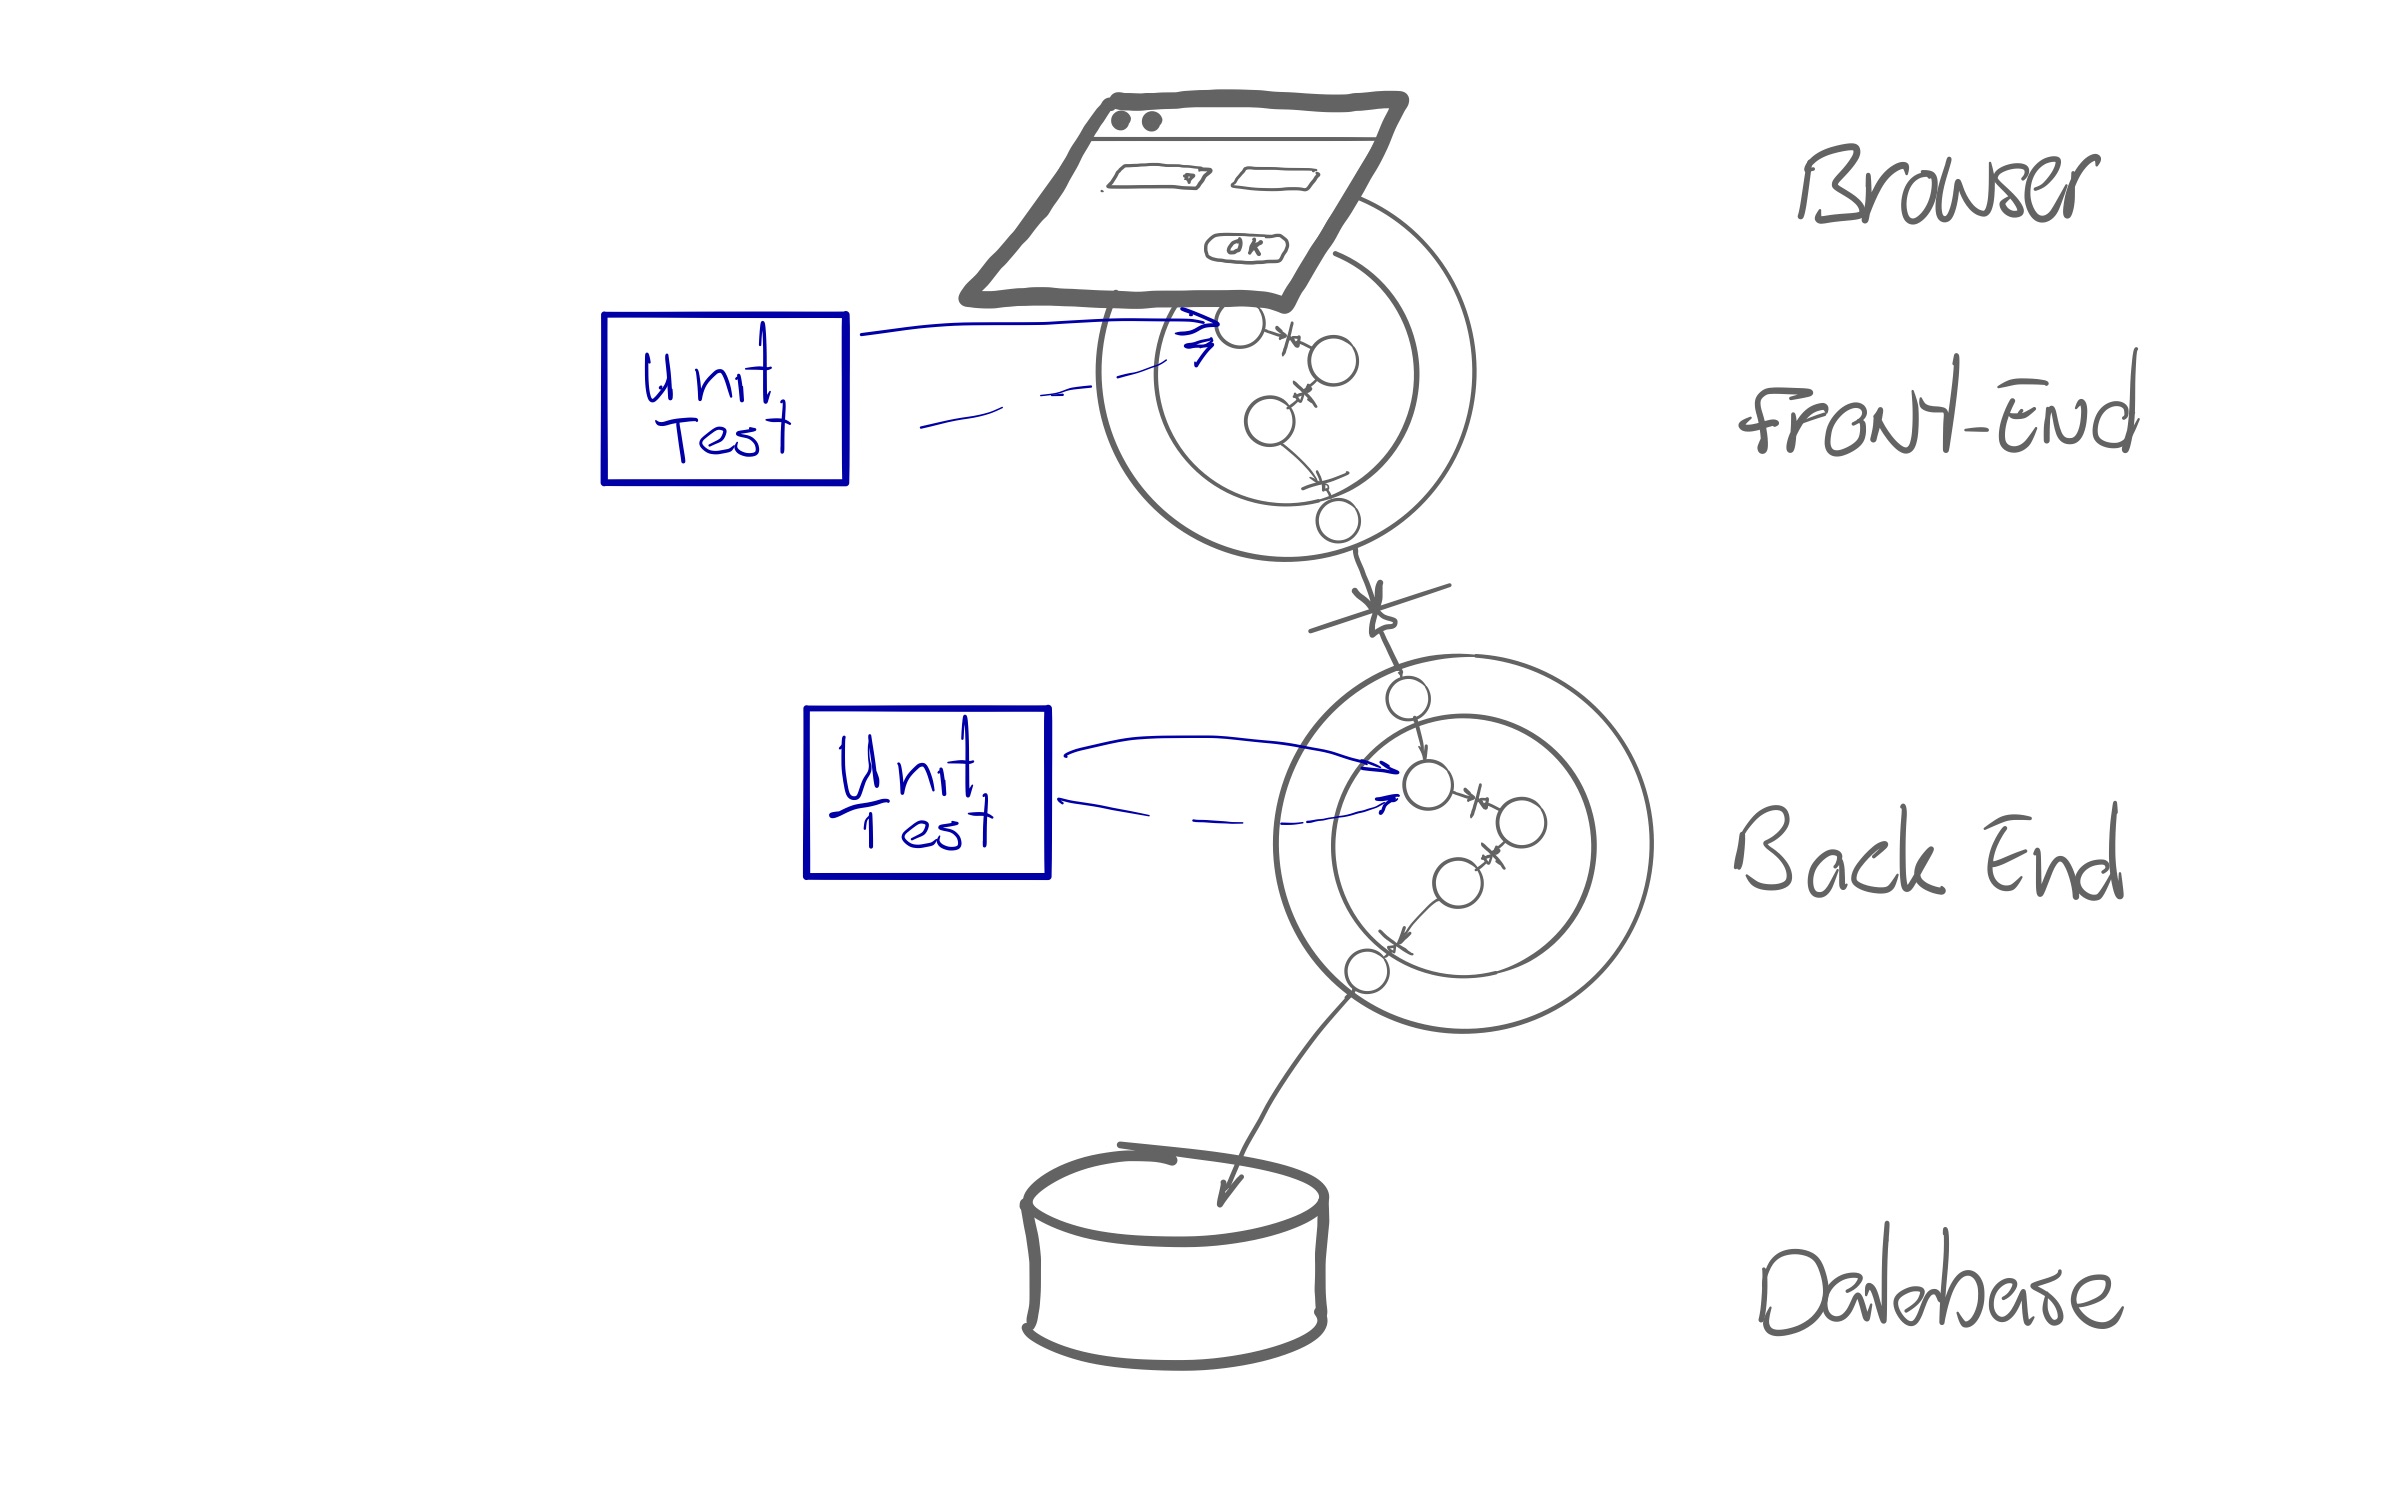 Browser
ok
Unit
Test
Front-End
Unit
Test
Back End
Database